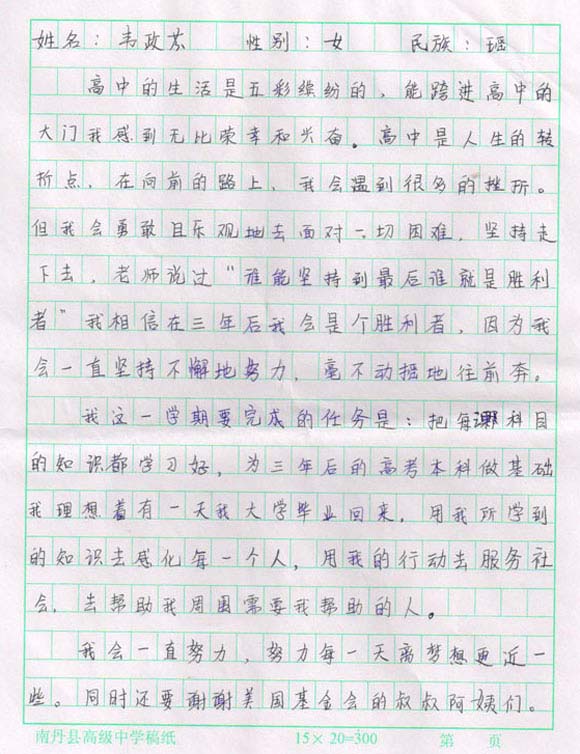 姓名：韦政芬 性别：女 民族：瑶
高中的生活是五彩缤纷的，能跨进高中的
大门我感到无比荣幸和兴奋。高中是人生的转
折点，在向前的路上，我会遇到很多的挫折。
但我会勇敢且乐观地去面对一切困难，坚持走
下去，老师说过“谁能坚持到最后谁就是胜利
者”我相信在三年后我会是个胜利者，因为我
会一直坚持不懈地努力，毫不动摇地往前奔。
我这一学期要完成的任务是：把每 科目
的知识都学习好，为三年后的高考本科做基础
我理想着有一天我大学毕业回来，用我所学到
的知识去感化每一个人，用我的行动去服务社
会，去帮助我周围需要我帮助的人。
我会一直努力，努力每一天离梦想更近一
些。同时还要谢谢美国基金会的叔叔阿姨们。
南丹县高级中学稿纸 15×20=300 第 页